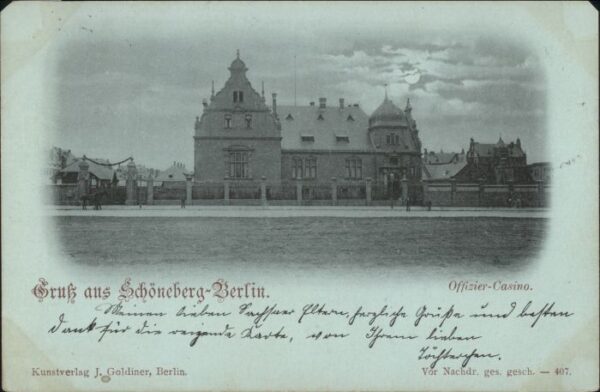 Gruß aus Schöneberg-Berlin.
Offizier-Casino.
Meinen lieben Eltern, herzliche Grüße und besten
Dank für die reizende Karte, von Ihrem lieben
Töchterchen.
Kunstverlag J. Goldiner, Berlin.
Vor Nachdr. ges. gesch. — 407.